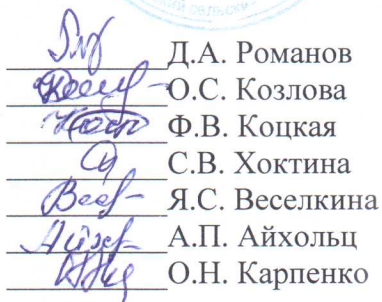 Д.А. Романов
О.С. Козлова
Ф.В. Коцкая
С.В. Хоктина
Я.С. Веселкина
А.П. Айхольц
О.Н. Карпенко